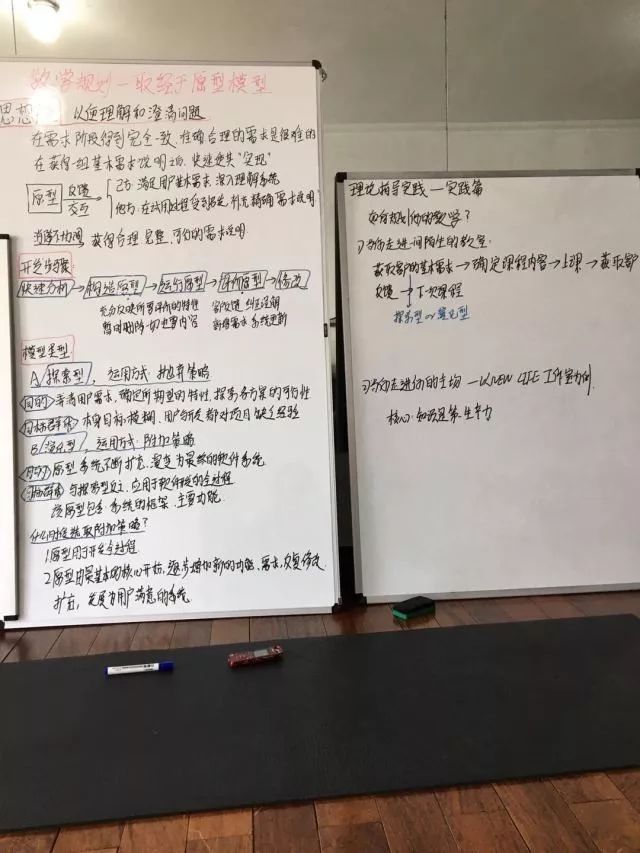 教学规划—取经于原型模型
思想 以便理解和澄清问题
在需求阶段得到完全一致、准确合理的需求是很难的
在获得一组基本需求说明之后,快速使其"实现"
原型 反馈 交互
己方:满足用户基本需求 深入理解系统
他方:在试用过程受到启发 补充精确需求说明
消除不协调 获得合理 完整,可行的需求说明
开发步骤:
快速分析→构造原型→运行原型→评价原型→修改
充分反映所要评价的特性
暂时删除一切次要内容
客户反馈 纠正误解
新增需求 系统更新
模型类型
A/探索型, 运用方式:抛弃策略
目的 弄清用户需求,确定所期望的特性,探索各方案的可行性
目标群体 本身目标模糊,用户与开发都对项目缺乏经验
B/演化型, 运用方式:附加策略
目的 原型系统不断扩充,演变为最终的软件系统
与探索型反之,应用于软件开发的全过程
该原型包含:系统的框架、主要功能
什么时候选取附加策略?
1.原型用于开发全过程
2.原型由最基本的核心开始,逐步增加新的功能、需求,反复修改
扩充,发展为用户满意的系统
理论指导实践—实践篇
如何规划你的教学?
1)当你走进一间陌生的教室:
获取客户的基本需求→确定课程内容→上课→获取客户
反馈→下次课程
探索型or演化型
2)当你走进你的主场—以NEW LIFE工作室为例
核心:知识是第一生产力